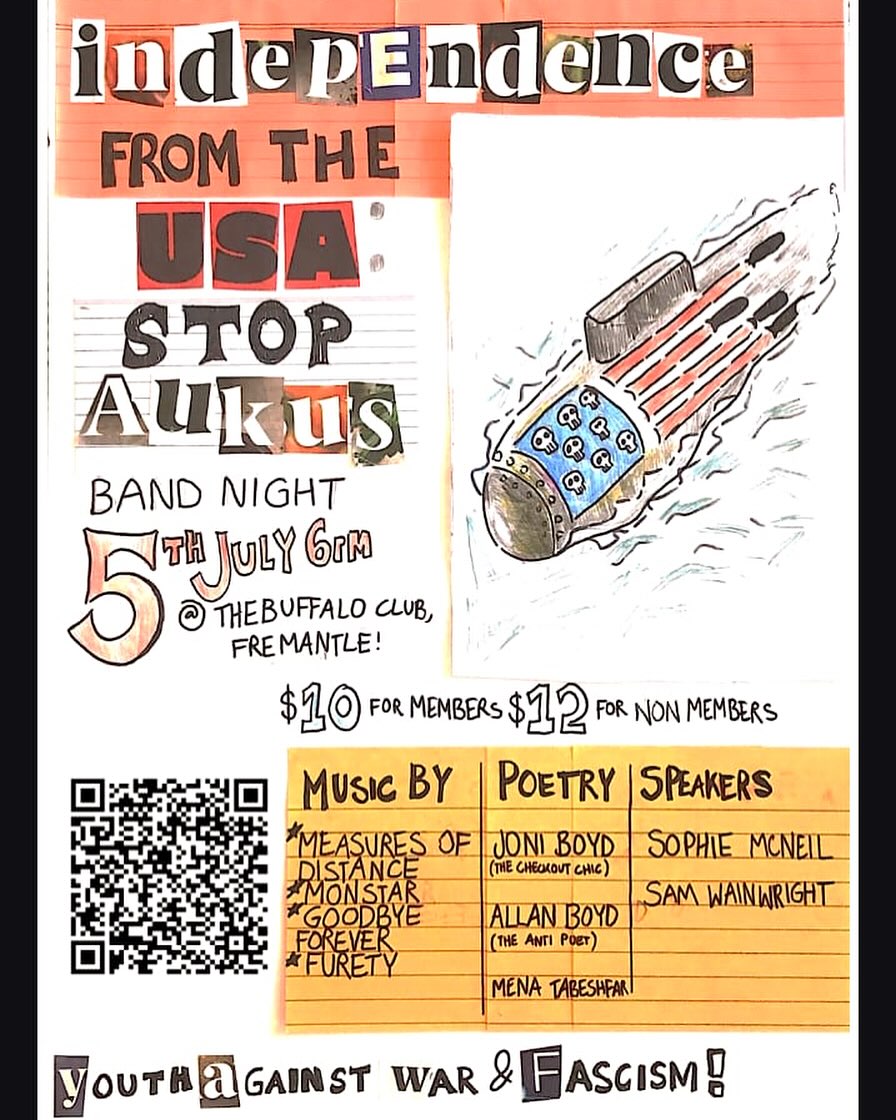 independence
FROM THE
USA:
STOP
AUkus
BAND NIGHT
5TH JULY 6PM
@ THE BUFFALO CLUB,
FREMANTLE!
$10 FOR MEMBERS $12 FOR NON MEMBERS
MUSIC BY
★MEASURES OF
DISTANCE
★MONSTAR
★GOODBYE
FOREVER
★FURETY
POETRY
JONI BOYD
(THE CHECKOUT CHIC)
ALLAN BOYD
(THE ANTI POET)
MENA TABESHFAR
SPEAKERS
SOPHIE MCNEIL
SAM WAINWRIGHT
yOUTH aGAINST WAR & FASCISM!